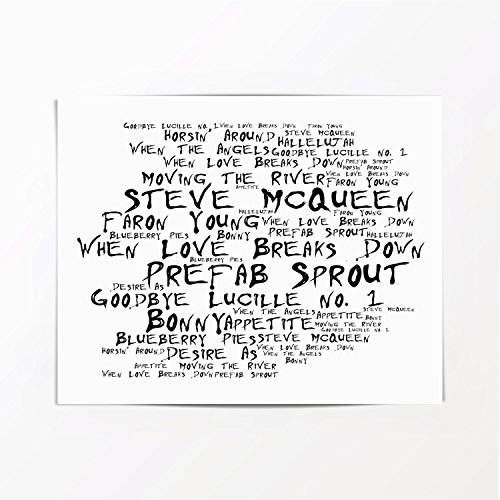 GOODBYE LUCILLE NO. 1 WHEN LOVE BREAKS DOWN FARON YOUNG
HORSIN' AROUND STEVE MCQUEEN HALLELUJAH
WHEN THE ANGELS GOODBYE LUCILLE NO. 1
WHEN LOVE BREAKS DOWN PREFAB SPROUT HORSIN' AROUND
MOVING THE RIVER WHEN LOVE BREAKS DOWN FARON YOUNG
APPETITE
STEVE MCQUEEN
HALLELUJAH FARON YOUNG
FARON YOUNG WHEN LOVE BREAKS DOWN
BLUEBERRY PIES BONNY PREFAB SPROUT HALLELUJAH
WHEN LOVE BREAKS DOWN
BLUEBERRY PIES
PREFAB SPROUT
DESIRE AS
GOODBYE LUCILLE NO. 1
STEVE MCQUEEN
WHEN THE ANGELS
BONNY APPETITE APPETITE BONNY
MOVING THE RIVER
GOODBYE LUCILLE NO. 1
BLUEBERRY PIES STEVE MCQUEEN
HORSIN' AROUND DESIRE AS WHEN LOVE BREAKS DOWN
WHEN THE ANGELS
BONNY
APPETITE MOVING THE RIVER
WHEN LOVE BREAKS DOWN PREFAB SPROUT